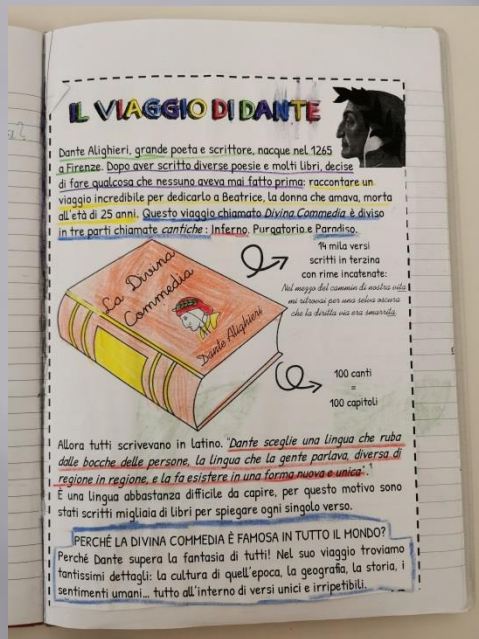 IL VIAGGIO DI DANTE
Dante Alighieri, grande poeta e scrittore, nacque nel 1265
a Firenze. Dopo aver scritto diverse poesie e molti libri, decise
di fare qualcosa che nessuno aveva mai fatto prima: raccontare un
viaggio incredibile per dedicarlo a Beatrice, la donna che amava, morta
all'età di 25 anni. Questo viaggio chiamato Divina Commedia è diviso
in tre parti chiamate cantiche: Inferno, Purgatorio e Paradiso.
La Divina
Commedia
Dante Alighieri
14 mila versi
scritti in terzina
con rime incatenate:
Nel mezzo del cammin di nostra vita
mi ritrovai per una selva oscura
che la diritta via era smarrita.
100 canti
=
100 capitoli
Allora tutti scrivevano in latino. "Dante sceglie una lingua che ruba
dalle bocche delle persone, la lingua che la gente parlava, diversa di
regione in regione, e la fa esistere in una forma nuova e unica".¹
È una lingua abbastanza difficile da capire, per questo motivo sono
stati scritti migliaia di libri per spiegare ogni singolo verso.
PERCHÉ LA DIVINA COMMEDIA È FAMOSA IN TUTTO IL MONDO?
Perché Dante supera la fantasia di tutti! Nel suo viaggio troviamo
tantissimi dettagli: la cultura di quell'epoca, la geografia, la storia, i
sentimenti umani... tutto all'interno di versi unici e irripetibili.